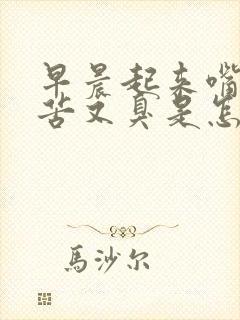 早晨起来嘴
苦又臭是怎
馬沙尔